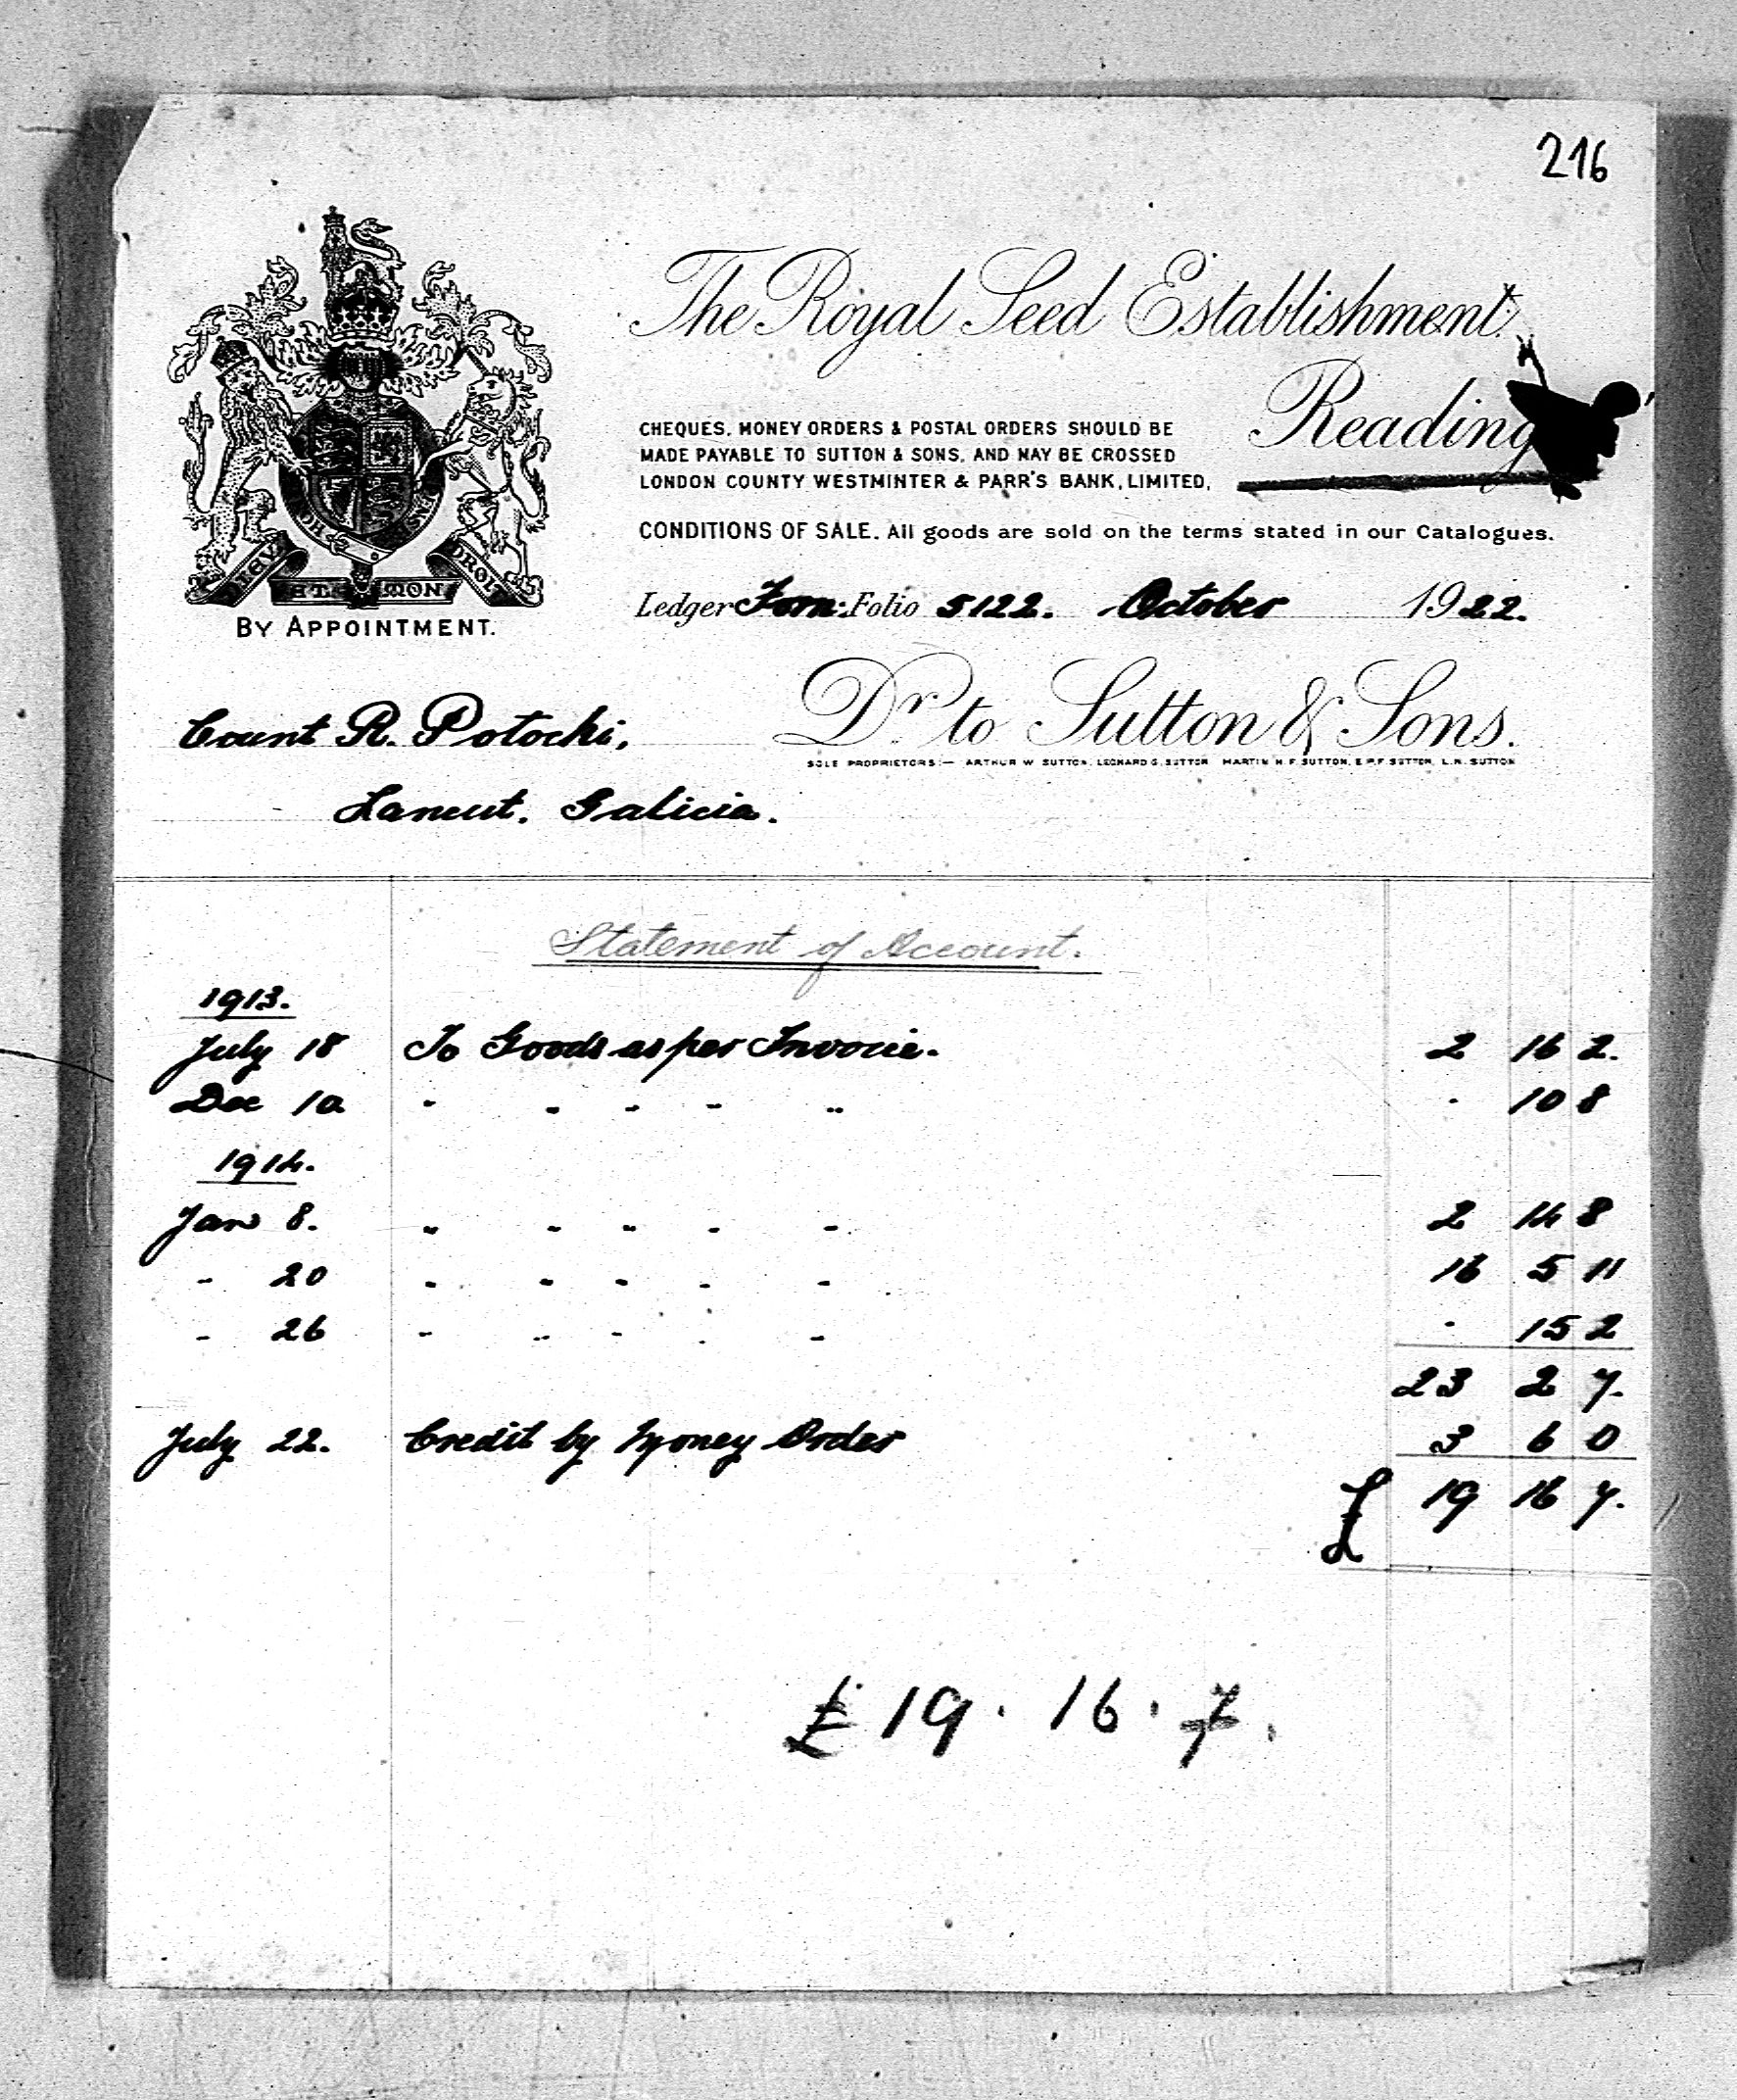 216
The Royal Seed Establishment,
Reading
CHEQUES, MONEY ORDERS & POSTAL ORDERS SHOULD BE
MADE PAYABLE TO SUTTON & SONS, AND MAY BE CROSSED
LONDON COUNTY WESTMINTER & PARR'S BANK, LIMITED,
CONDITIONS OF SALE. All goods are sold on the terms stated in our Catalogues.
DIEU ET MON DROIT
BY APPOINTMENT.
Ledger Forn: Folio 5122. October 1922.
Dr. to Sutton & Sons.
SOLE PROPRIETORS:— ARTHUR W SUTTON, LEONARD G. SUTTON MARTIN H. F. SUTTON, E.P.F. SUTTON, L.N. SUTTON
Count R. Potocki,
Lancut. Galicia.
Statement of Account.
1913.
July 18 To Goods as per Invoice. 2 16 2.
Dec 10 " " " " " . 10 8
1914.
Jan 8. " " " " " 2 14 8
" 20 " " " " " 16 5 11
" 26 " " " " " . 15 2
23 2 7.
July 22. Credit by Money Order 3 6 0
£ 19 16 7.
£19. 16. 7.